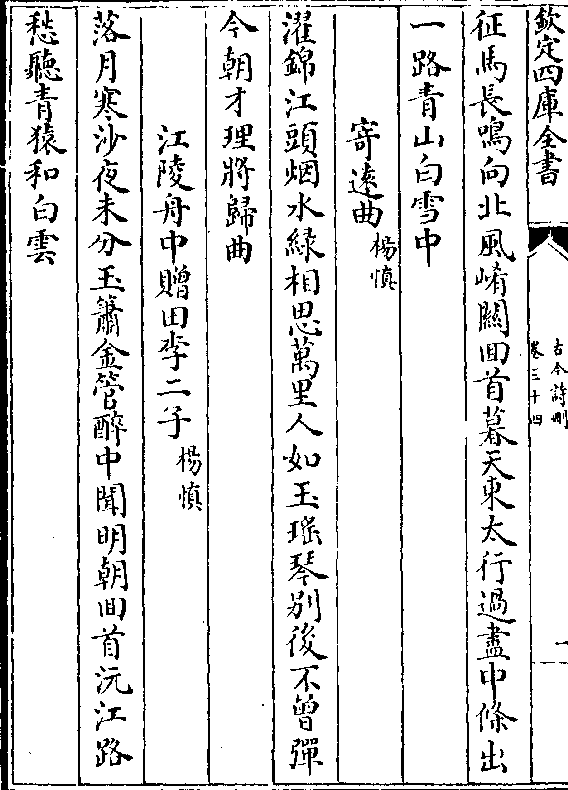 欽定四庫全書
古今詩刪
卷三十四
征馬長鳴向北風崤關回首暮天東太行過盡中條出
一路青山白雪中
寄遠曲楊慎
濯錦江頭烟水緑相思萬里人如玉瑶琴别後不曾彈
今朝才理將歸曲
江陵舟中贈田李二子楊慎
落月寒沙夜未分玉簫金管醉中聞明朝回首沅江路
愁聽青猿和白雲